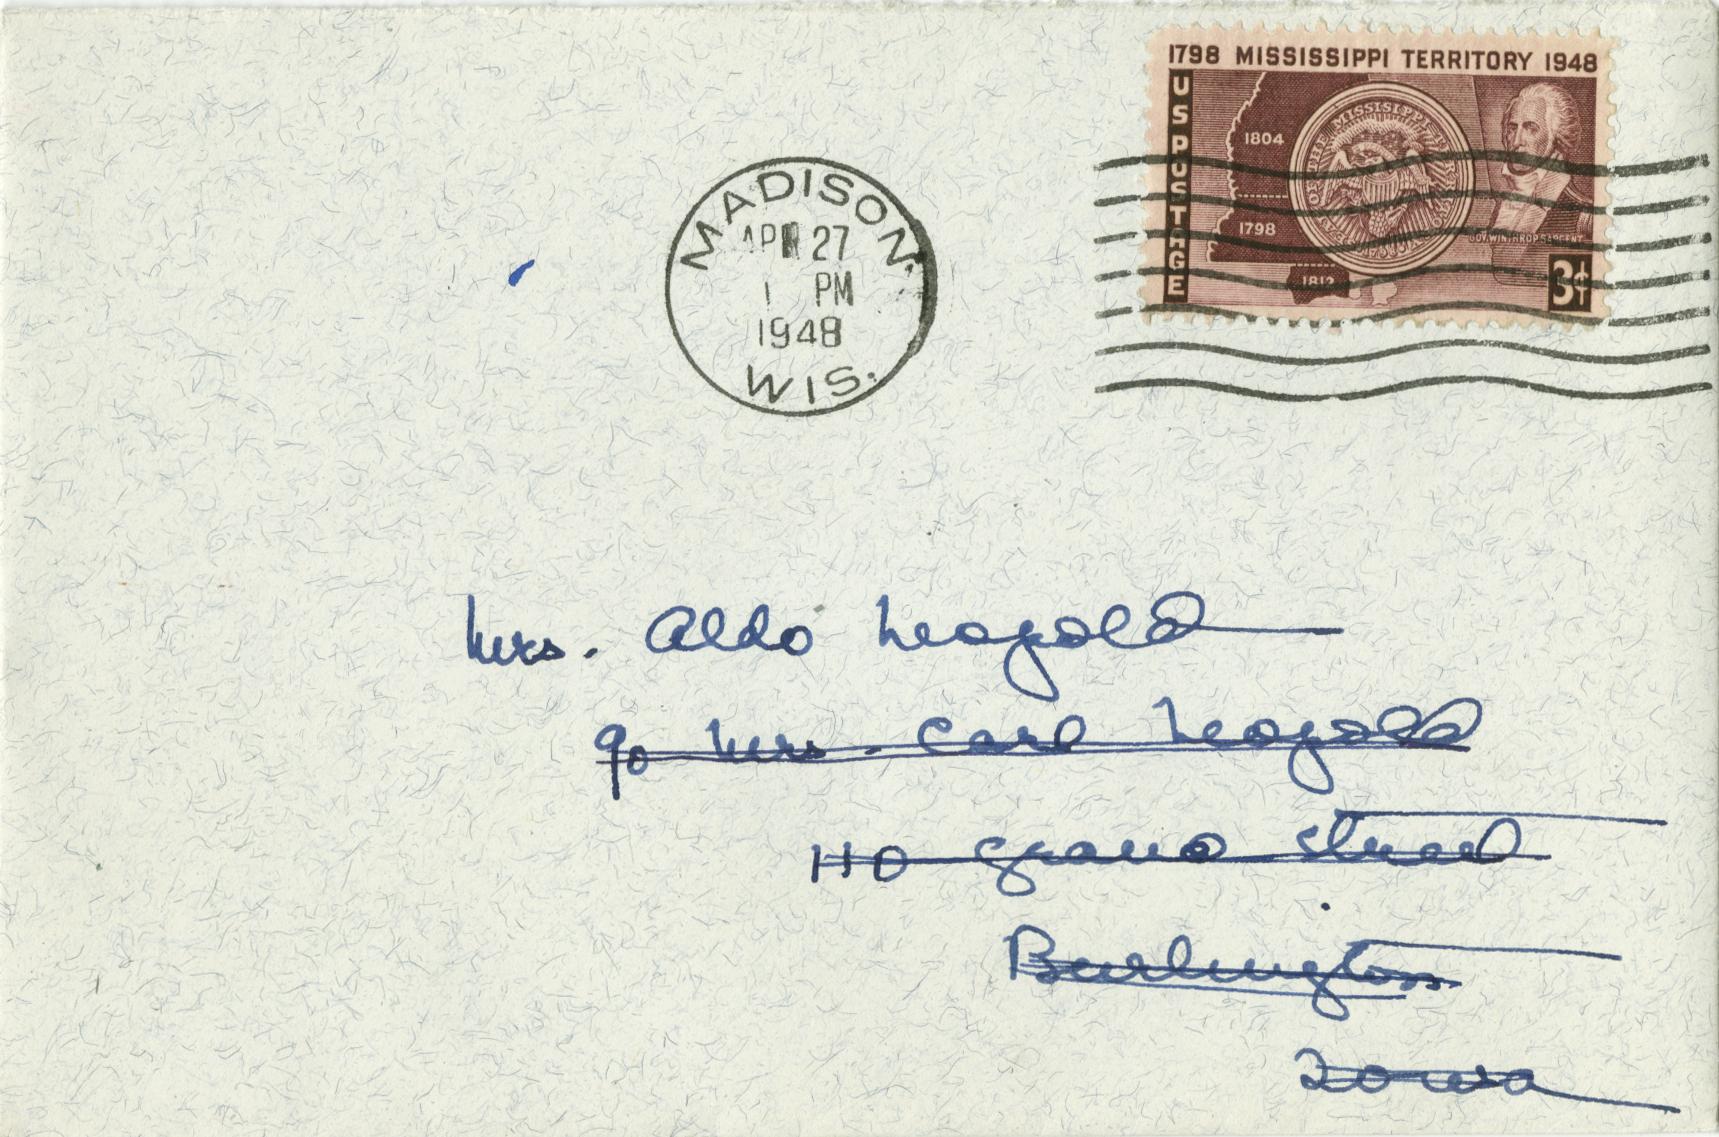 1798 MISSISSIPPI TERRITORY 1948
US POSTAGE
1804
1798
1812
GOV. WINTHROP SARGENT
3¢
MADISON,
APR 27
1 PM
1948
WIS.
Mrs. Aldo Leopold
c/o Mrs. Carl Leopold
110 Grand Street
Burlington
Iowa